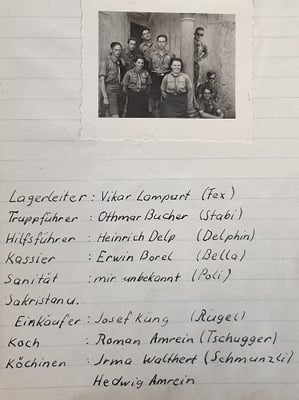 Lagerleiter : Vikar Lampart (Fex)
Truppführer : Othmar Bucher (Stabi)
Hilfsführer : Heinrich Delp (Delphin)
Kassier : Erwin Borel (Bella)
Sanität : mir unbekannt (Poli)
Sakristan u.
Einkäufer : Josef Kung (Rügel)
Koch : Roman Amrein (Tschugger)
Köchinen : Irma Walthert (Schmunzli)
Hedwig Amrein